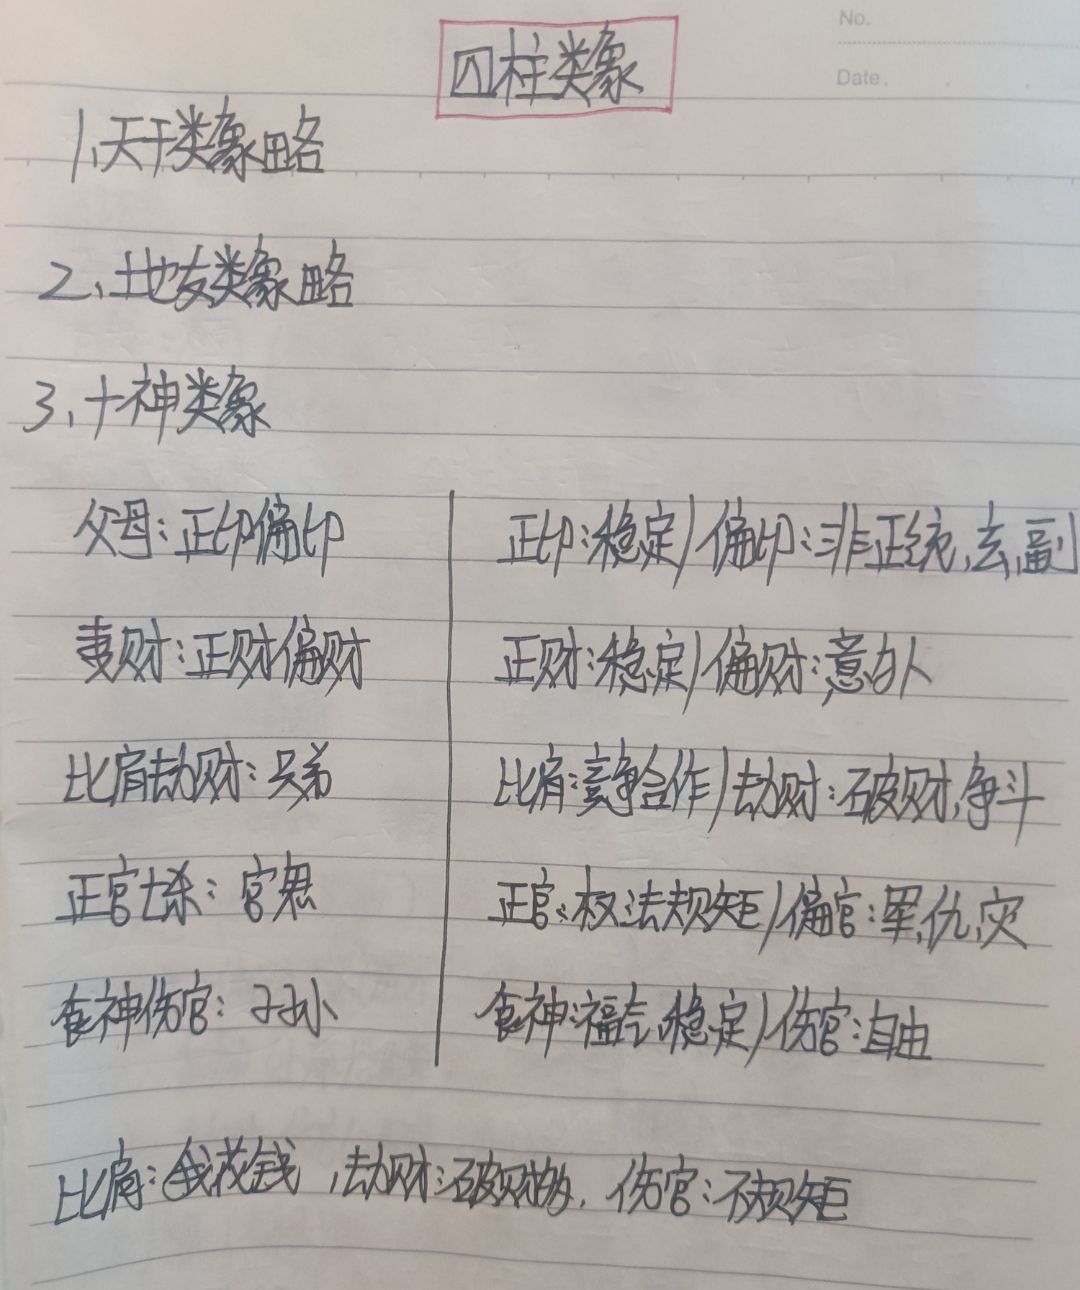 No.
Date.
四柱类象
1、天干类象略
2、地支类象略
3、十神类象
父母：正印偏印
正印：稳定/偏印：非正统,玄,副
妻财：正财偏财
正财：稳定/偏财：意外
比肩劫财：兄弟
比肩：竞争合作/劫财：破财,争斗
正官七杀：官鬼
正官：权法规矩/偏官：军,仇,灾
食神伤官：子孙
食神：福气,稳定/伤官：自由
比肩：钱花钱,劫财：破财物,伤官：不规矩